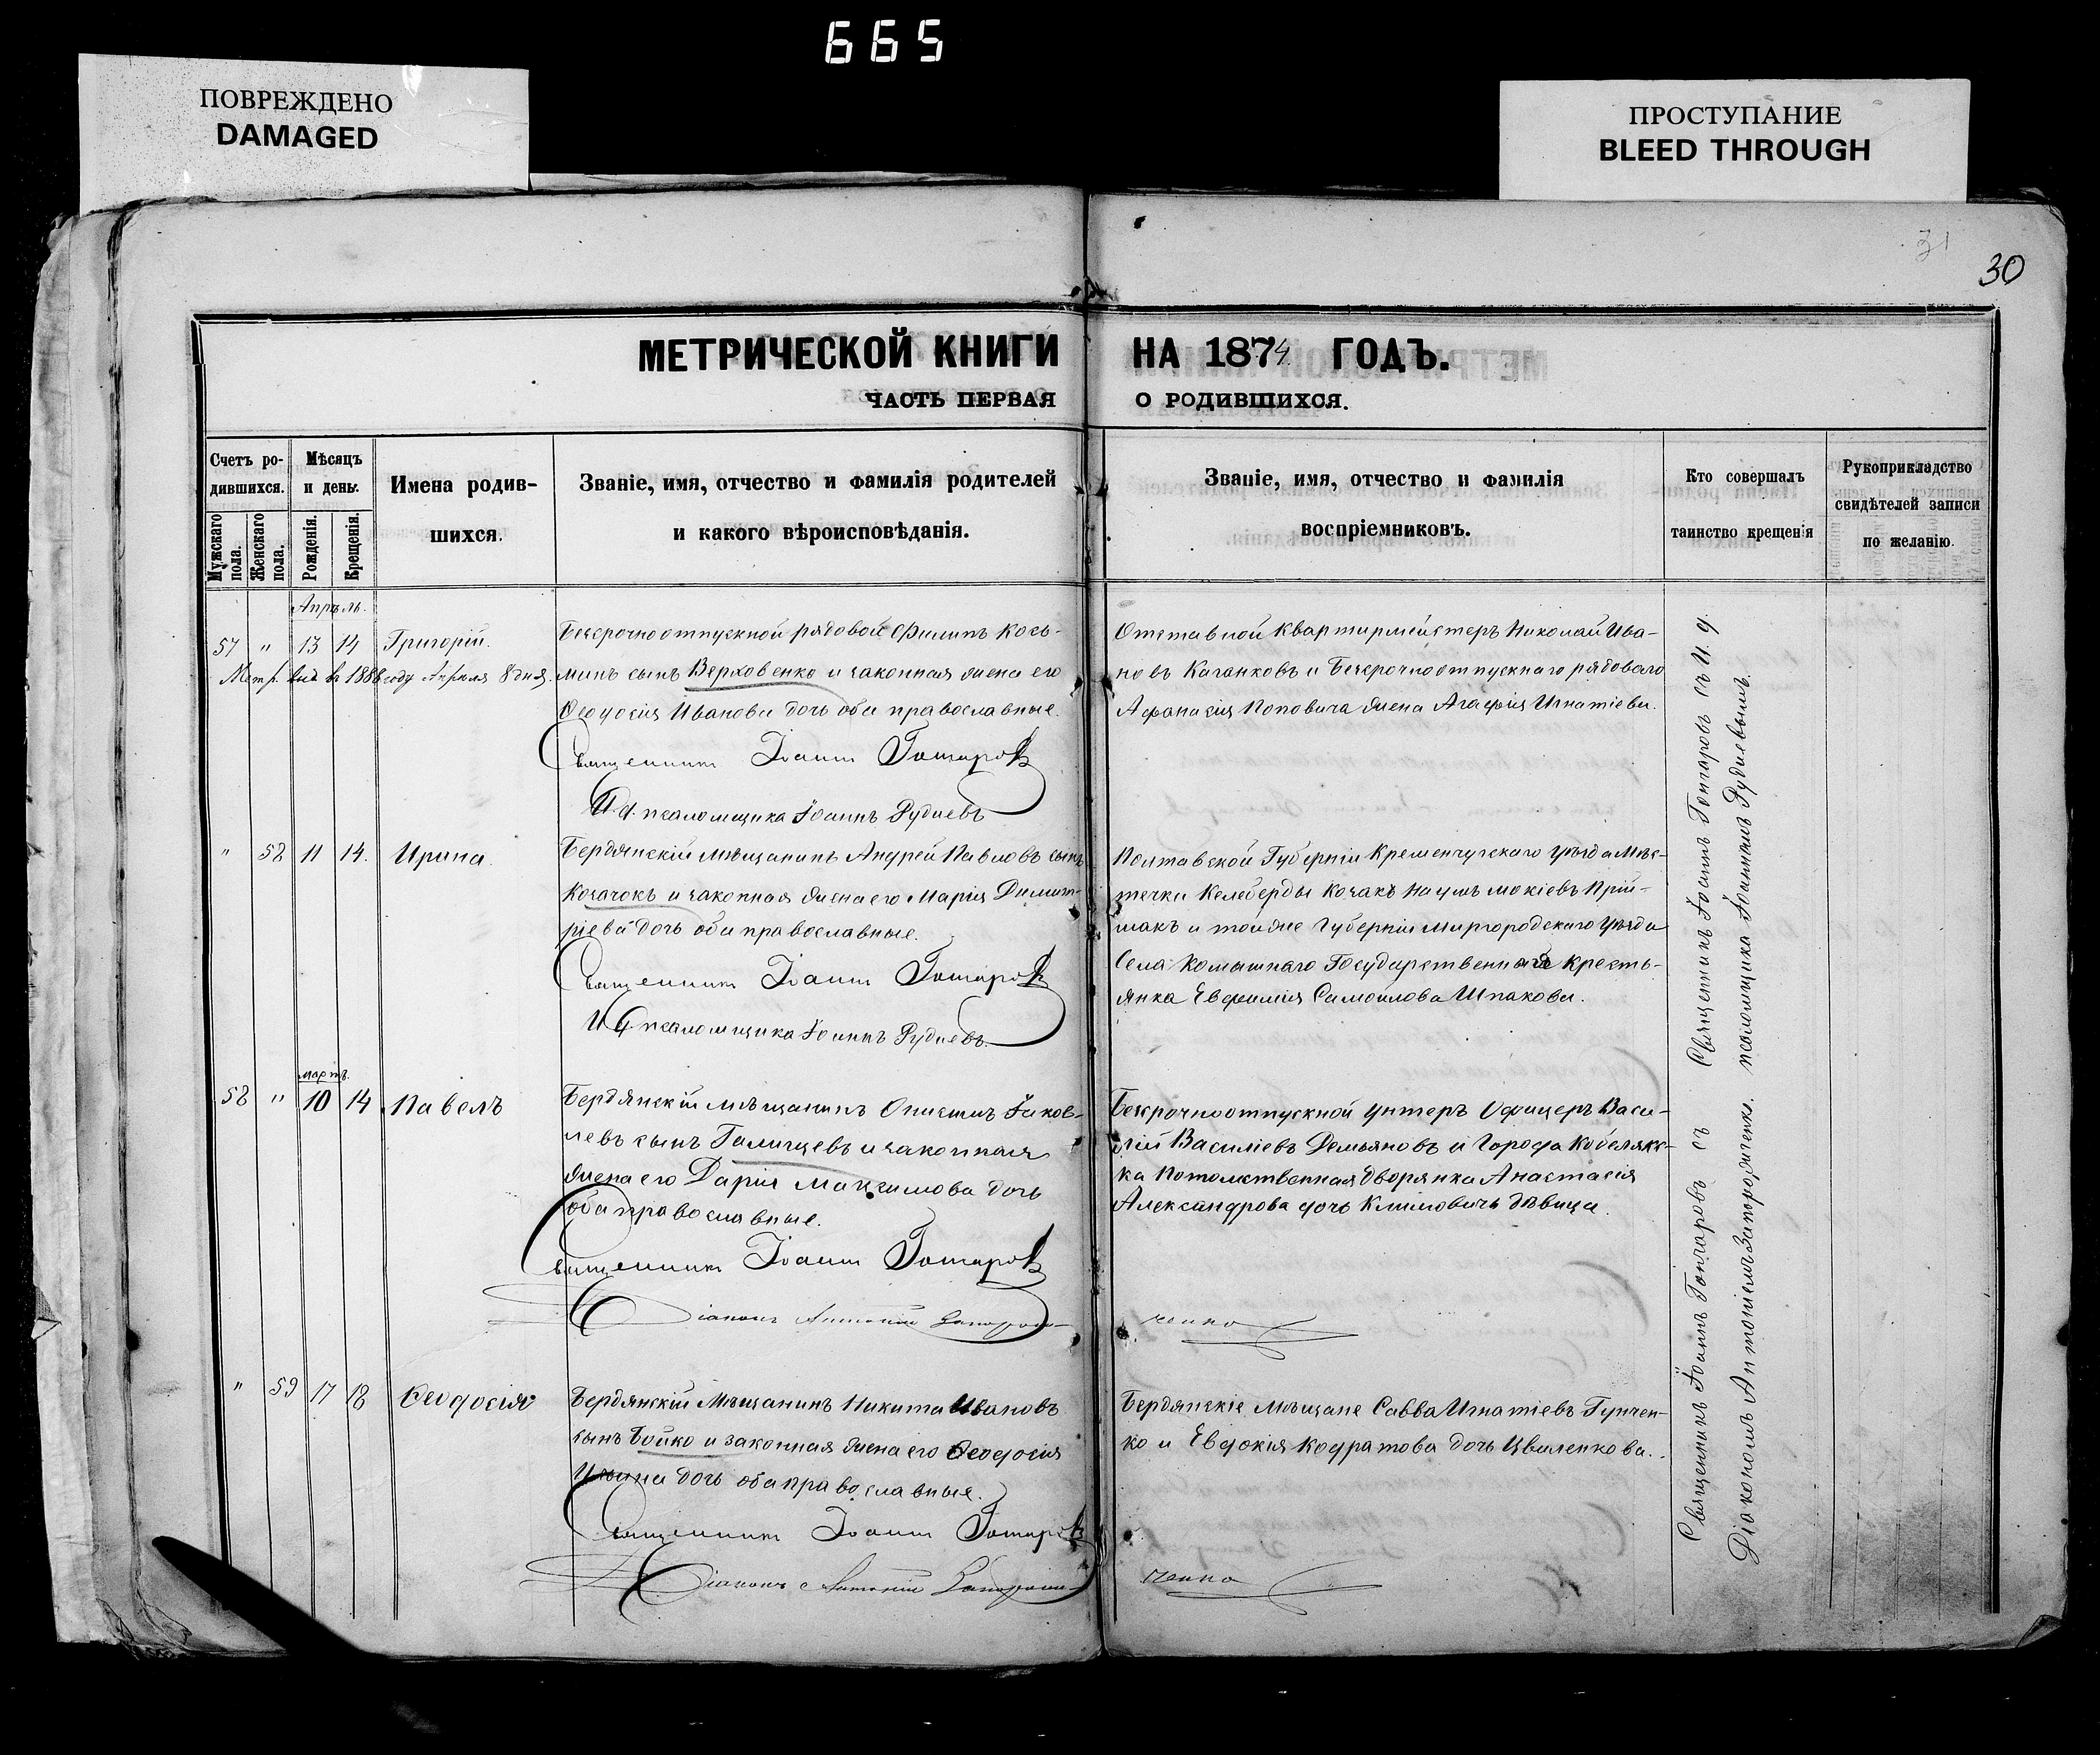 665
ПОВРЕЖДЕНО
DAMAGED
ПРОСТУПАНИЕ
BLEED THROUGH
31
30
МЕТРИЧЕСКОЙ КНИГИ НА 1874 ГОДЪ.
ЧАСТЬ ПЕРВАЯ О РОДИВШИХСЯ.
Счетъ ро-
дившихся.
Мужскаго пола.
Женскаго пола.
Мѣсяцъ
и день.
Рожденія.
Крещенія.
Имена родив-
шихся.
Званіе, имя, отчество и фамилія родителей
и какого вѣроисповѣданія.
Званіе, имя, отчество и фамилія
воспріемниковъ.
Кто совершалъ
таинство крещенія
Рукоприкладство
свидѣтелей записи
по желанію.
Апрѣль.
57 " 13 14 Григорій.
Метр. выд. въ 1888 году Апрѣля 8 дня.
Безсрочноотпускной рядовой Филипъ Козь-
минъ сынъ Верховенко и законная жена его
Ѳеодосія Иванова дочь оба православные.
Священникъ Іоаннъ Гончаровъ
И. д. псаломщика Іоаннъ Рудневъ
Отставной Квартирмейстеръ Николай Ива-
новъ Каганковъ и Безсрочноотпускнаго рядоваго
Афанасія Поповича жена Агафія Игнатіева.
" 58 11 14. Ирина.
Бердянскій мѣщанинъ Андрей Павловъ сынъ
Козачокъ и законная жена его Марія Димит-
ріева дочь оба православные.
Священникъ Іоаннъ Гончаровъ
И. д. псаломщика Іоаннъ Рудневъ.
Полтавской Губерніи Кременчугскаго уѣзда Мѣс-
течка Келеберды Козакъ Наумъ Мокіевъ Прій-
макъ и той же Губерніи Миргородскаго уѣзда
Села Комышнаго Государственная кресть-
янка Евфимія Самоилова Шпакова.
мартъ.
58 " 10 14 Павелъ
Бердянскій мѣщанинъ Онисимъ Яков-
левъ сынъ Галищевъ и законная
жена его Дарія Максимова дочь
оба православные.
Священникъ Іоаннъ Гончаровъ
Діаконъ Антоній Запорож-
ченко
Безсрочноотпускной унтеръ Офицеръ Васи-
лій Василіевъ Демьяновъ и Города Кобеляк-
ка Потомственная дворянка Анастасія
Александрова дочь Климовичъ дѣвица.
" 59 17 18 Ѳеодосія
Бердянскій Мѣщанинъ Никита Ивановъ
сынъ Бойко и законная жена его Ѳеодосія
дочь оба православные.
Священникъ Іоаннъ Гончаровъ
Діаконъ Антоній Запорож-
ченко
Бердянскіе Мѣщане Савва Игнатіевъ Гунчен-
ко и Евдокія Кодратова дочь Цвиленкова.
Священникъ Іоаннъ Гончаровъ съ И. д.
псаломщика Іоанномъ Рудневымъ.
Священникъ Іоаннъ Гончаровъ съ
Діакономъ Антоніемъ Запорожченко.